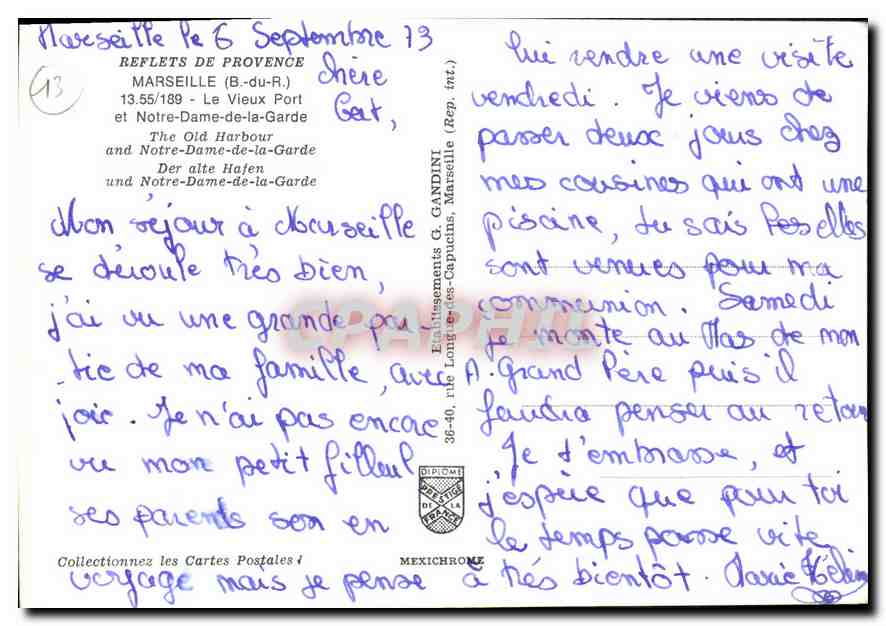 Marseille le 6 Septembre 73
13
REFLETS DE PROVENCE
MARSEILLE (B.-du-R.)
13.55/189 - Le Vieux Port
et Notre-Dame-de-la-Garde
The Old Harbour
and Notre-Dame-de-la-Garde
Der alte Hafen
und Notre-Dame-de-la-Garde
chère
Mon séjour à Marseille
se déroule très bien,
j'ai vu une grande par-
-tie de ma famille, avec
joie. Je n'ai pas encore
vu mon petit filleul
ses parents son en
voyage mais je pense
Collectionnez les Cartes Postales !
MEXICHROME
DIPLOME
PRESTIGE
DE LA
FRANCE
Etablissements G. GANDINI
36-40, rue Longue-des-Capucins, Marseille (Rep. int.)
lui rendre une visite
vendredi. Je viens de
passer deux jours chez
mes cousines qui ont une
piscine, tu sais elles
sont venues pour ma
communion. Samedi
je monte au Mas de mon
A. Grand Père puis il
faudra penser au retour
Je t'embrasse, et
j'espère que pour toi
le temps passe vite
à très bientôt. Marie Hélène
CPAPHIL